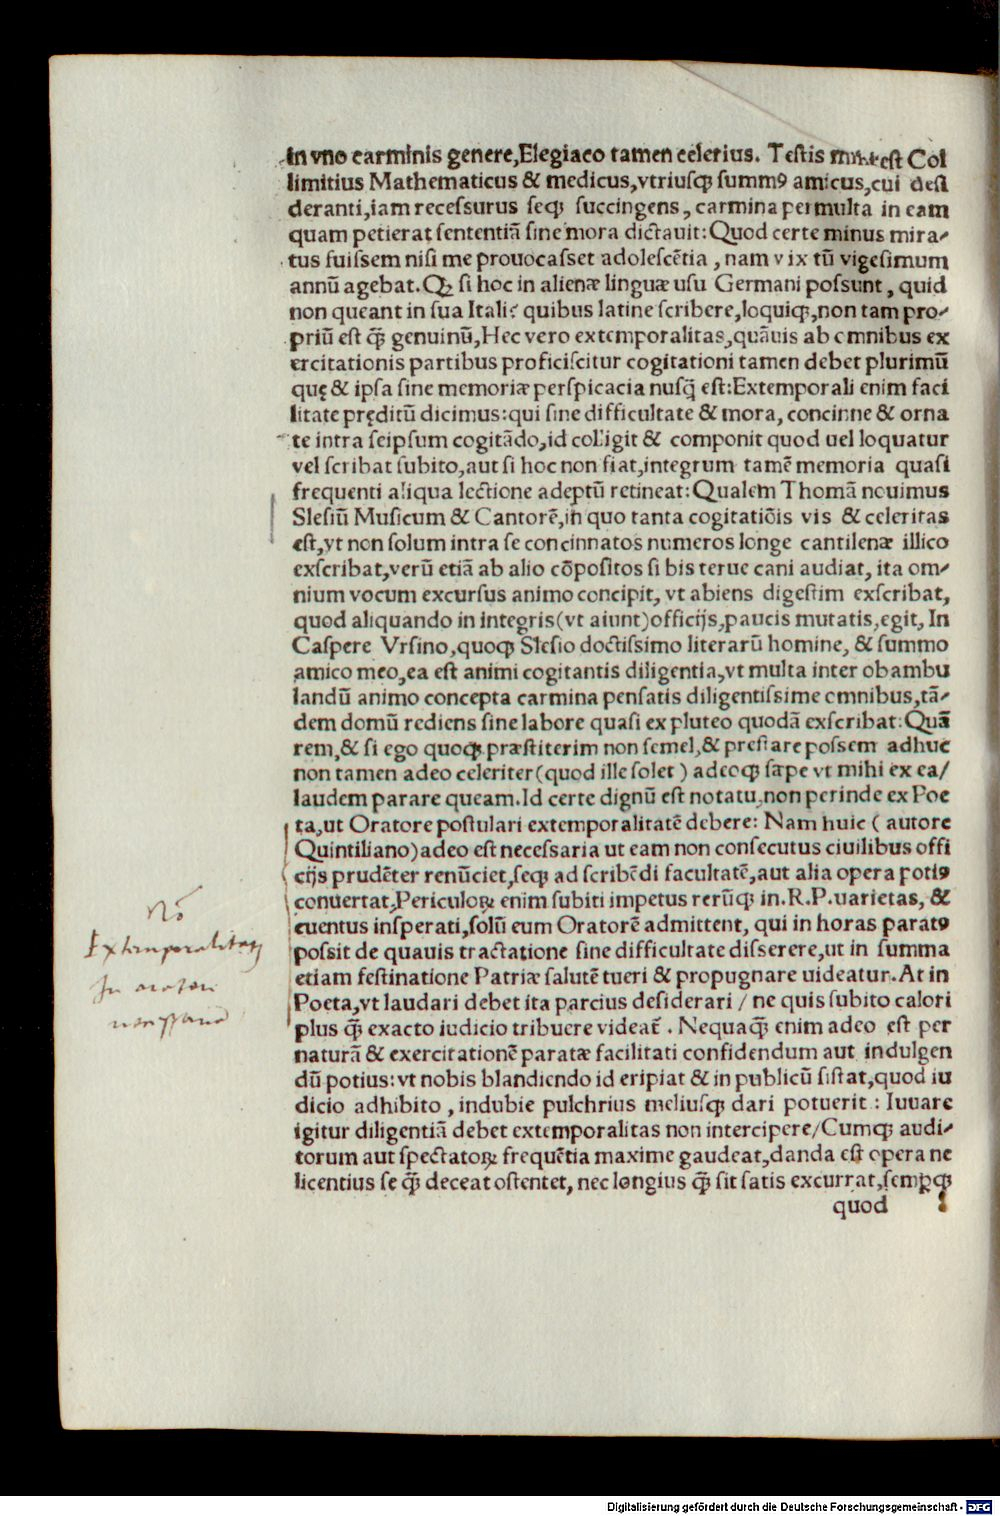 in vno carminis genere, Elegiaco tamen celerius. Testis mihi est Col
limitius Mathematicus & medicus, vtriusqꝫ summꝰ amicus, cui desi
deranti, iam recessurus seqꝫ succingens, carmina permulta in eam
quam petierat sententiã sine mora dictauit: Quod certe minus mira⸗
tus fuissem nisi me prouocasset adolescẽtia, nam vix tũ vigesimum
annũ agebat. Qꝫ si hoc in alienæ linguæ usu Germani possunt, quid
non queant in sua Itali? quibus latine scribere, loquiqꝫ, non tam pro⸗
priũ est q̃ genuinũ, Hec vero extemporalitas, quãuis ab omnibus ex
ercitationis partibus proficiscitur cogitationi tamen debet plurimũ
quę & ipsa sine memoriæ perspicacia nusq̃ est: Extemporali enim faci
litate pręditũ dicimus: qui sine difficultate & mora, concinne & orna
te intra seipsum cogitãdo, id colligit & componit quod uel loquatur
vel scribat subito, aut si hoc non fiat, integrum tamẽ memoria quasi
frequenti aliqua lectione adeptũ retineat: Qualem Thomã nouimus
Slesiũ Musicum & Cantorẽ, in quo tanta cogitatiõis vis & celeritas
est, vt non solum intra se concinnatos numeros longe cantilenæ illico
exscribat, verũ etiã ab alio cõpositos si bis terue cani audiat, ita om⸗
nium vocum excursus animo concipit, vt abiens digestim exscribat,
quod aliquando in integris (vt aiunt) officijs, paucis mutatis, egit, In
Caspere Vrsino, quoqꝫ Slesio doctissimo literarũ homine, & summo
amico meo, ea est animi cogitantis diligentia, vt multa inter obambu
landũ animo concepta carmina pensatis diligentissime omnibus, tã⸗
dem domũ rediens sine labore quasi ex pluteo quodã exscribat: Quã
rem, & si ego quoqꝫ præstiterim non semel, & prestare possem adhuc
non tamen adeo celeriter (quod ille solet) adeoqꝫ sæpe vt mihi ex ea/
laudem parare queam. Id certe dignũ est notatu, non perinde ex Poe
ta, ut Oratore postulari extemporalitatẽ debere: Nam huic (autore
Quintiliano) adeo est necessaria ut eam non consecutus ciuilibus offi
cijs prudẽter renũciet, seqꝫ ad scribẽdi facultatẽ, aut alia opera potiꝰ
conuertat, Periculoꝝ enim subiti impetus rerũqꝫ in. R. P. uarietas, &
euentus insperati, solũ eum Oratorẽ admittent, qui in horas paratꝰ
possit de quauis tractatione sine difficultate disserere, ut in summa
etiam festinatione Patriæ salutẽ tueri & propugnare uideatur. At in
Poeta, vt laudari debet ita parcius desiderari / ne quis subito calori
plus q̃ exacto iudicio tribuere videat̃. Nequaq̃ enim adeo est per
naturã & exercitationẽ paratæ facilitati confidendum aut indulgen
dũ potius: vt nobis blandiendo id eripiat & in publicũ sistat, quod iu
dicio adhibito, indubie pulchrius meliusqꝫ dari potuerit: Iuuare
igitur diligentiã debet extemporalitas non intercipere/ Cumqꝫ audi⸗
torum aut spectatoꝝ frequẽtia maxime gaudeat, danda est opera ne
licentius se q̃ deceat ostentet, nec longius q̃ sit satis excurrat, semꝑqꝫ
quod
Nõ
Extemporalitatẽ
In oratori
necessariã
Digitalisierung gefördert durch die Deutsche Forschungsgemeinschaft - DFG